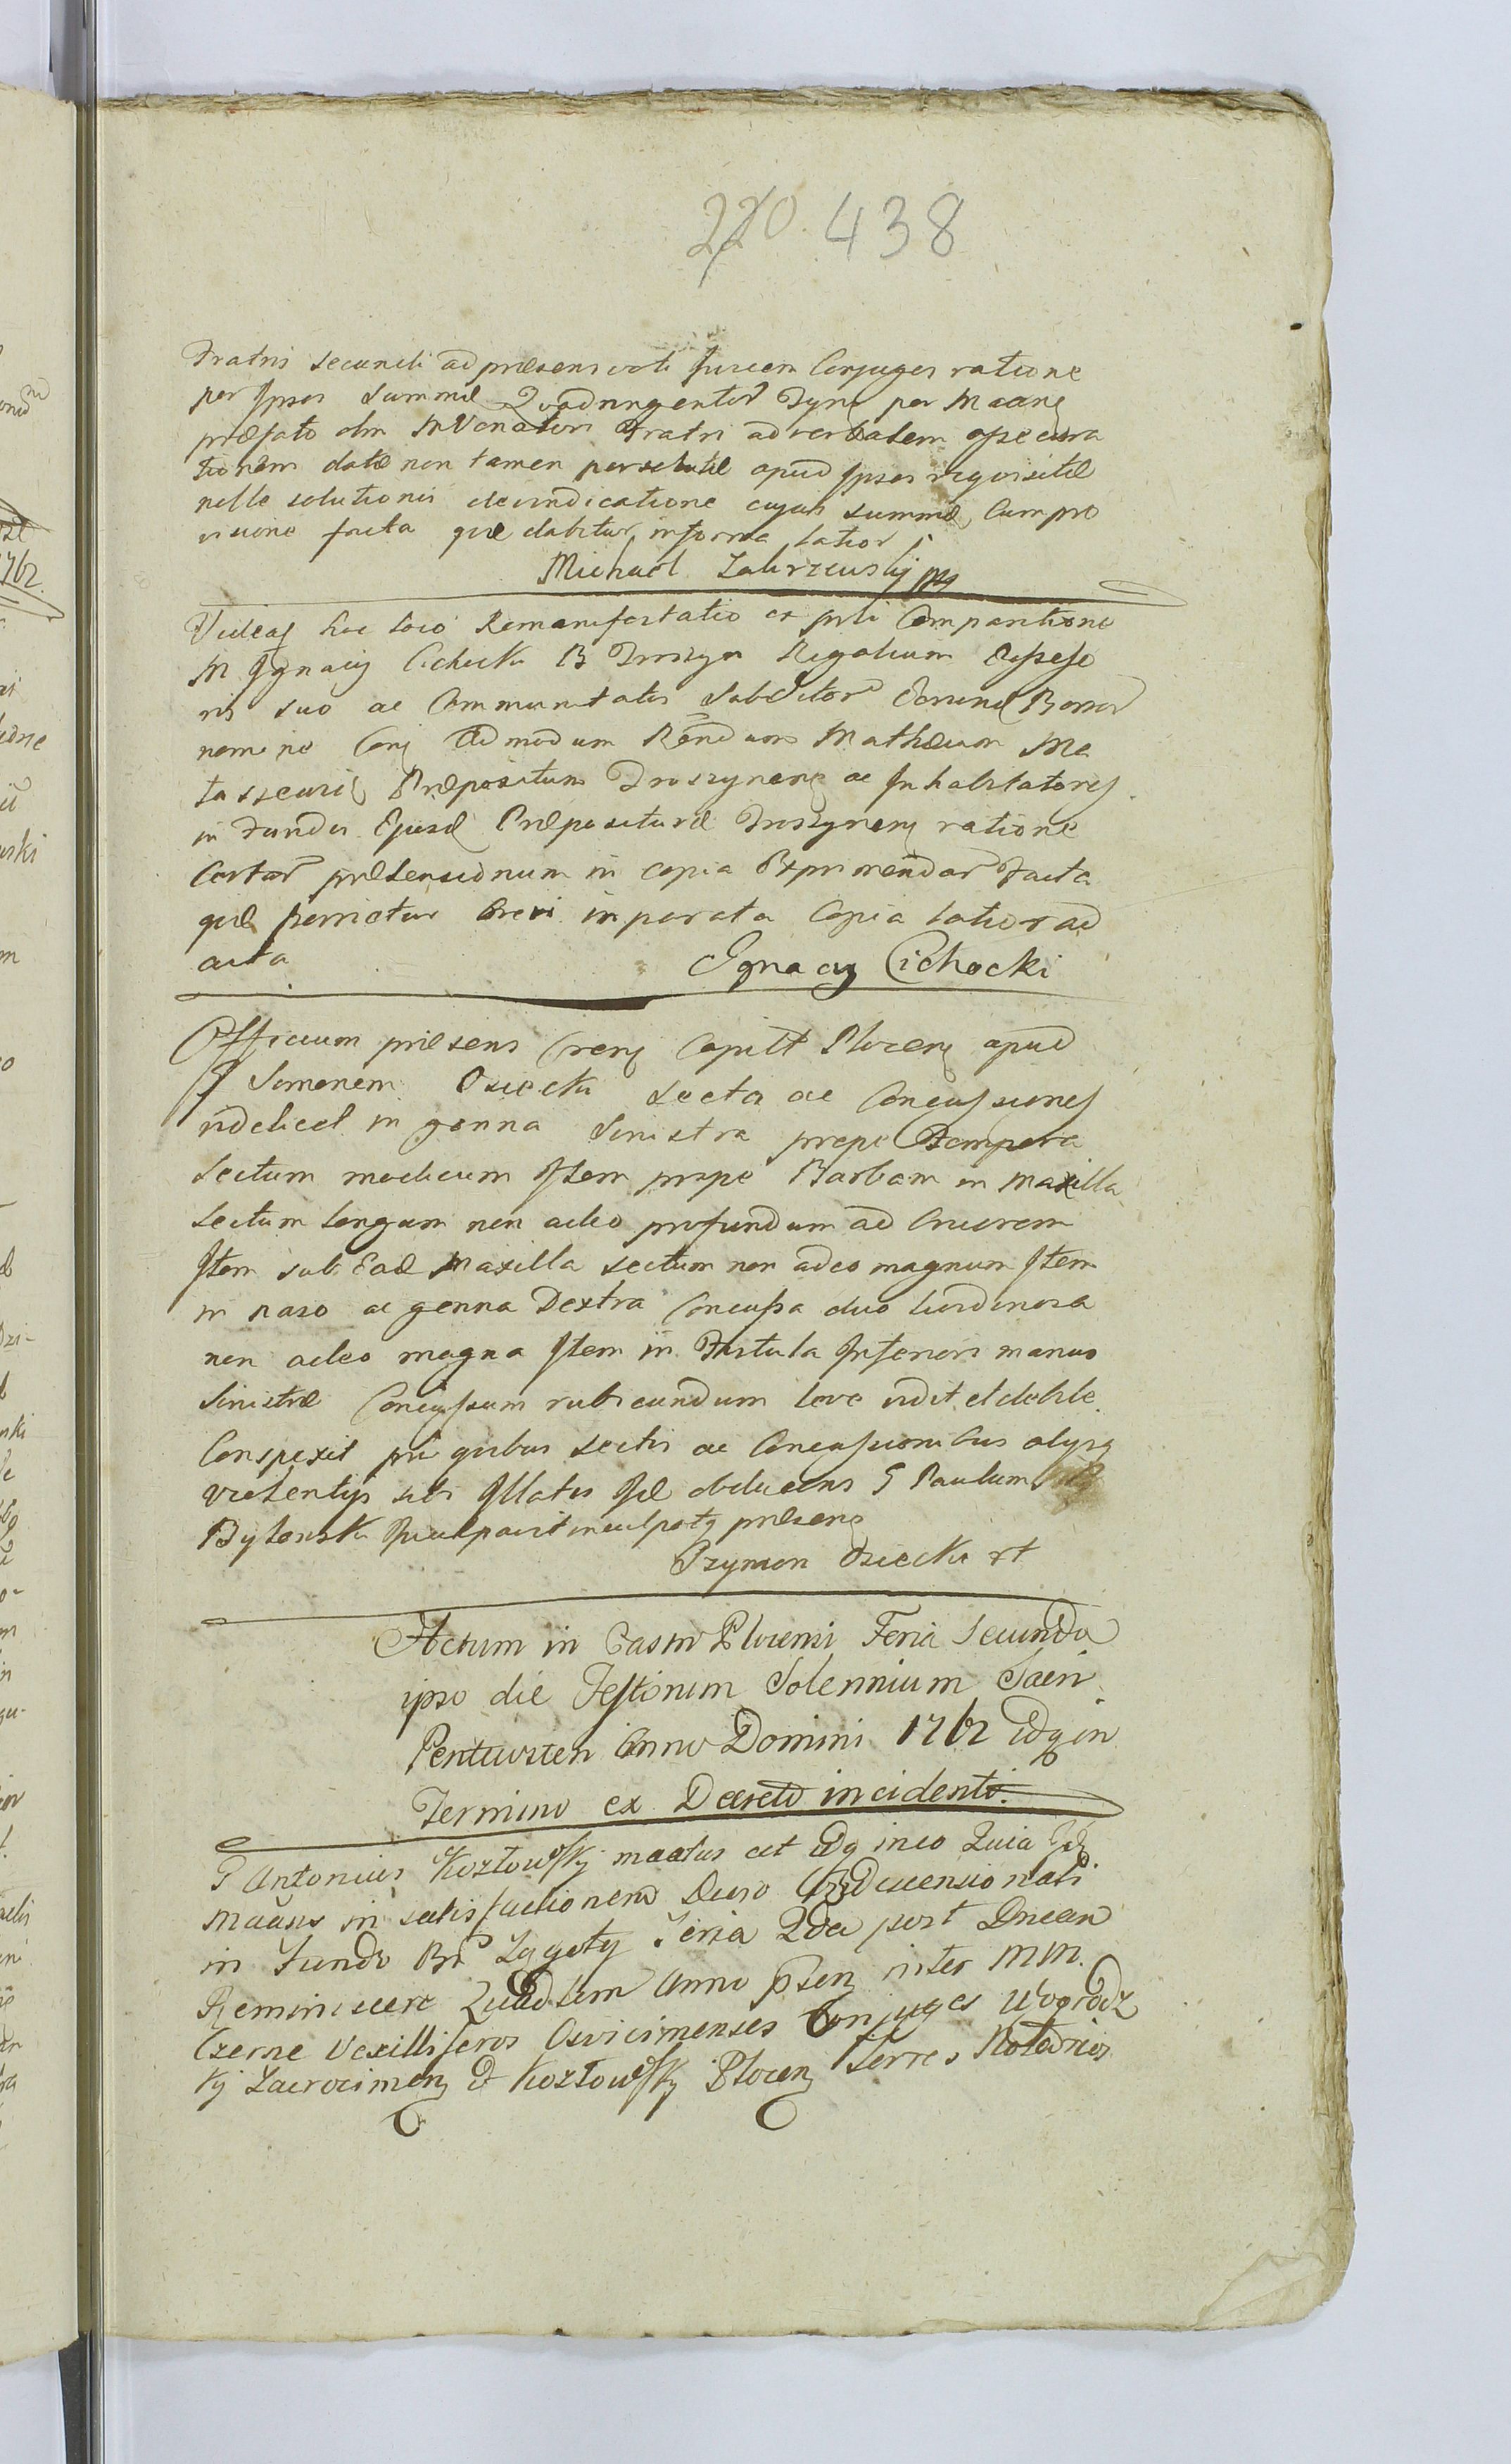 220. 438
Fratris secundi ad praesens voti invicem Conjuges ratione
per Ipsos summae Quadringentor Tynf per Maans
praefato olim M Venatori Fratri ad verbalem assecura
tionem datae non tamen persolutae apud Ipsos requisitae
nolle solutionis devindicatione cujus summae Cum pro
visione facta quae dabitur in forma latior
Michael Zabrzewskij mp
Videas hoc loco Remanifestatio ex psti Comparitione
M Ignacij Cichocki B Troszyn Regalium Possesso
ris suo ac Communitatis Subditor Eorund Bonor
nomine Cons Admodum Rendum Mathaeum Ma
taszewic Praepositum Troszynens ac Inhabitatores
in Fundis Ejusd Praepositurae Troszynens ratione
Certar praetensionum in copia Exprimendar Facta
quae porrietur brevi in parata Copia latior ad
acta
Ignacy Cichocki
Officium praesens Crens Capitt Plocens apud
G Simonem Osiecki secta ac Concussiones
videlicet in genna Sinistra prope Tempora
Sectum modicum Item prope Barbam in maxilla
Sectum longum non adeo profundum ad Cruorem
Item sub Ead Maxilla sectum non adeo magnum Item
in naso ac genna Dextra Concussa duo lividinosa
non adeo magna Item in Fistula Inferiori manus
Sinistrae Concussum rubicundum leve vidit et debite
Conspexit pro quibus sectis ac Concussionibus alijsq
violentijs sibi Illatis Id obducens G Paulum
Bytonski Inculpavit inculpatq praesens
Szymon Osiecki rt
Actum in Castro Plocensi Feria Secunda
ipso die Festorum Solennium Sacri
Pentecosten Anno Domini 1762 Idq in
Termino ex Decreto incidenti.
G Antonius Kozłowsky maatus est Idq in eo Quia
Maans in satisfactionem Duo Condescensionali
in Fundo Br Zągoty Feria 2da post Dncam
Reminiscere Quadlem Anno psen inter MM.
Czerne Vexilliferos Osvicimenses Conjuges Wogrodz
ky Zacrocimens & Kozłowsky Plocens Terres Notarios